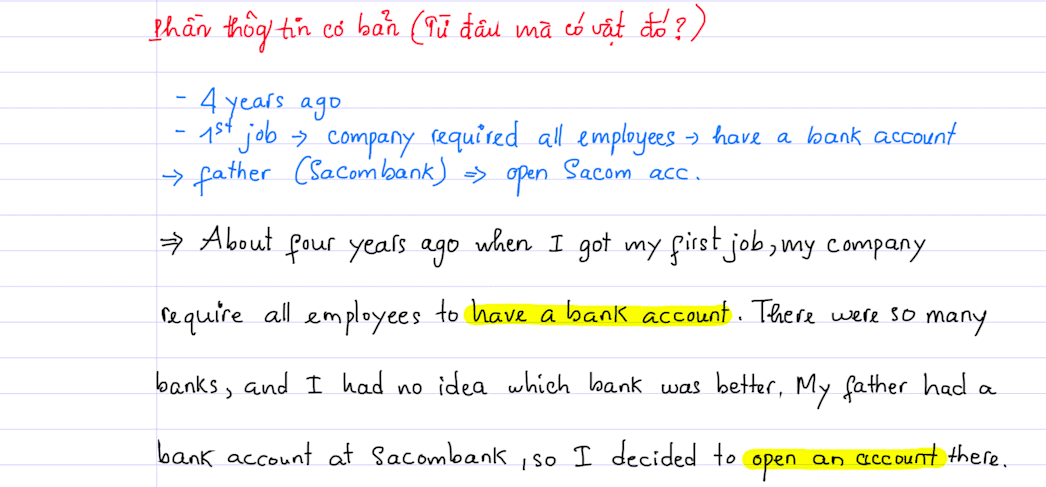 Phần thông tin cơ bản (Từ đâu mà có vật đó?)
- 4 years ago
- 1st job → company required all employees → have a bank account
→ father (Sacombank) ⇒ open Sacom acc.
⇒ About four years ago when I got my first job, my company
require all employees to have a bank account. There were so many
banks, and I had no idea which bank was better. My father had a
bank account at Sacombank, so I decided to open an account there.